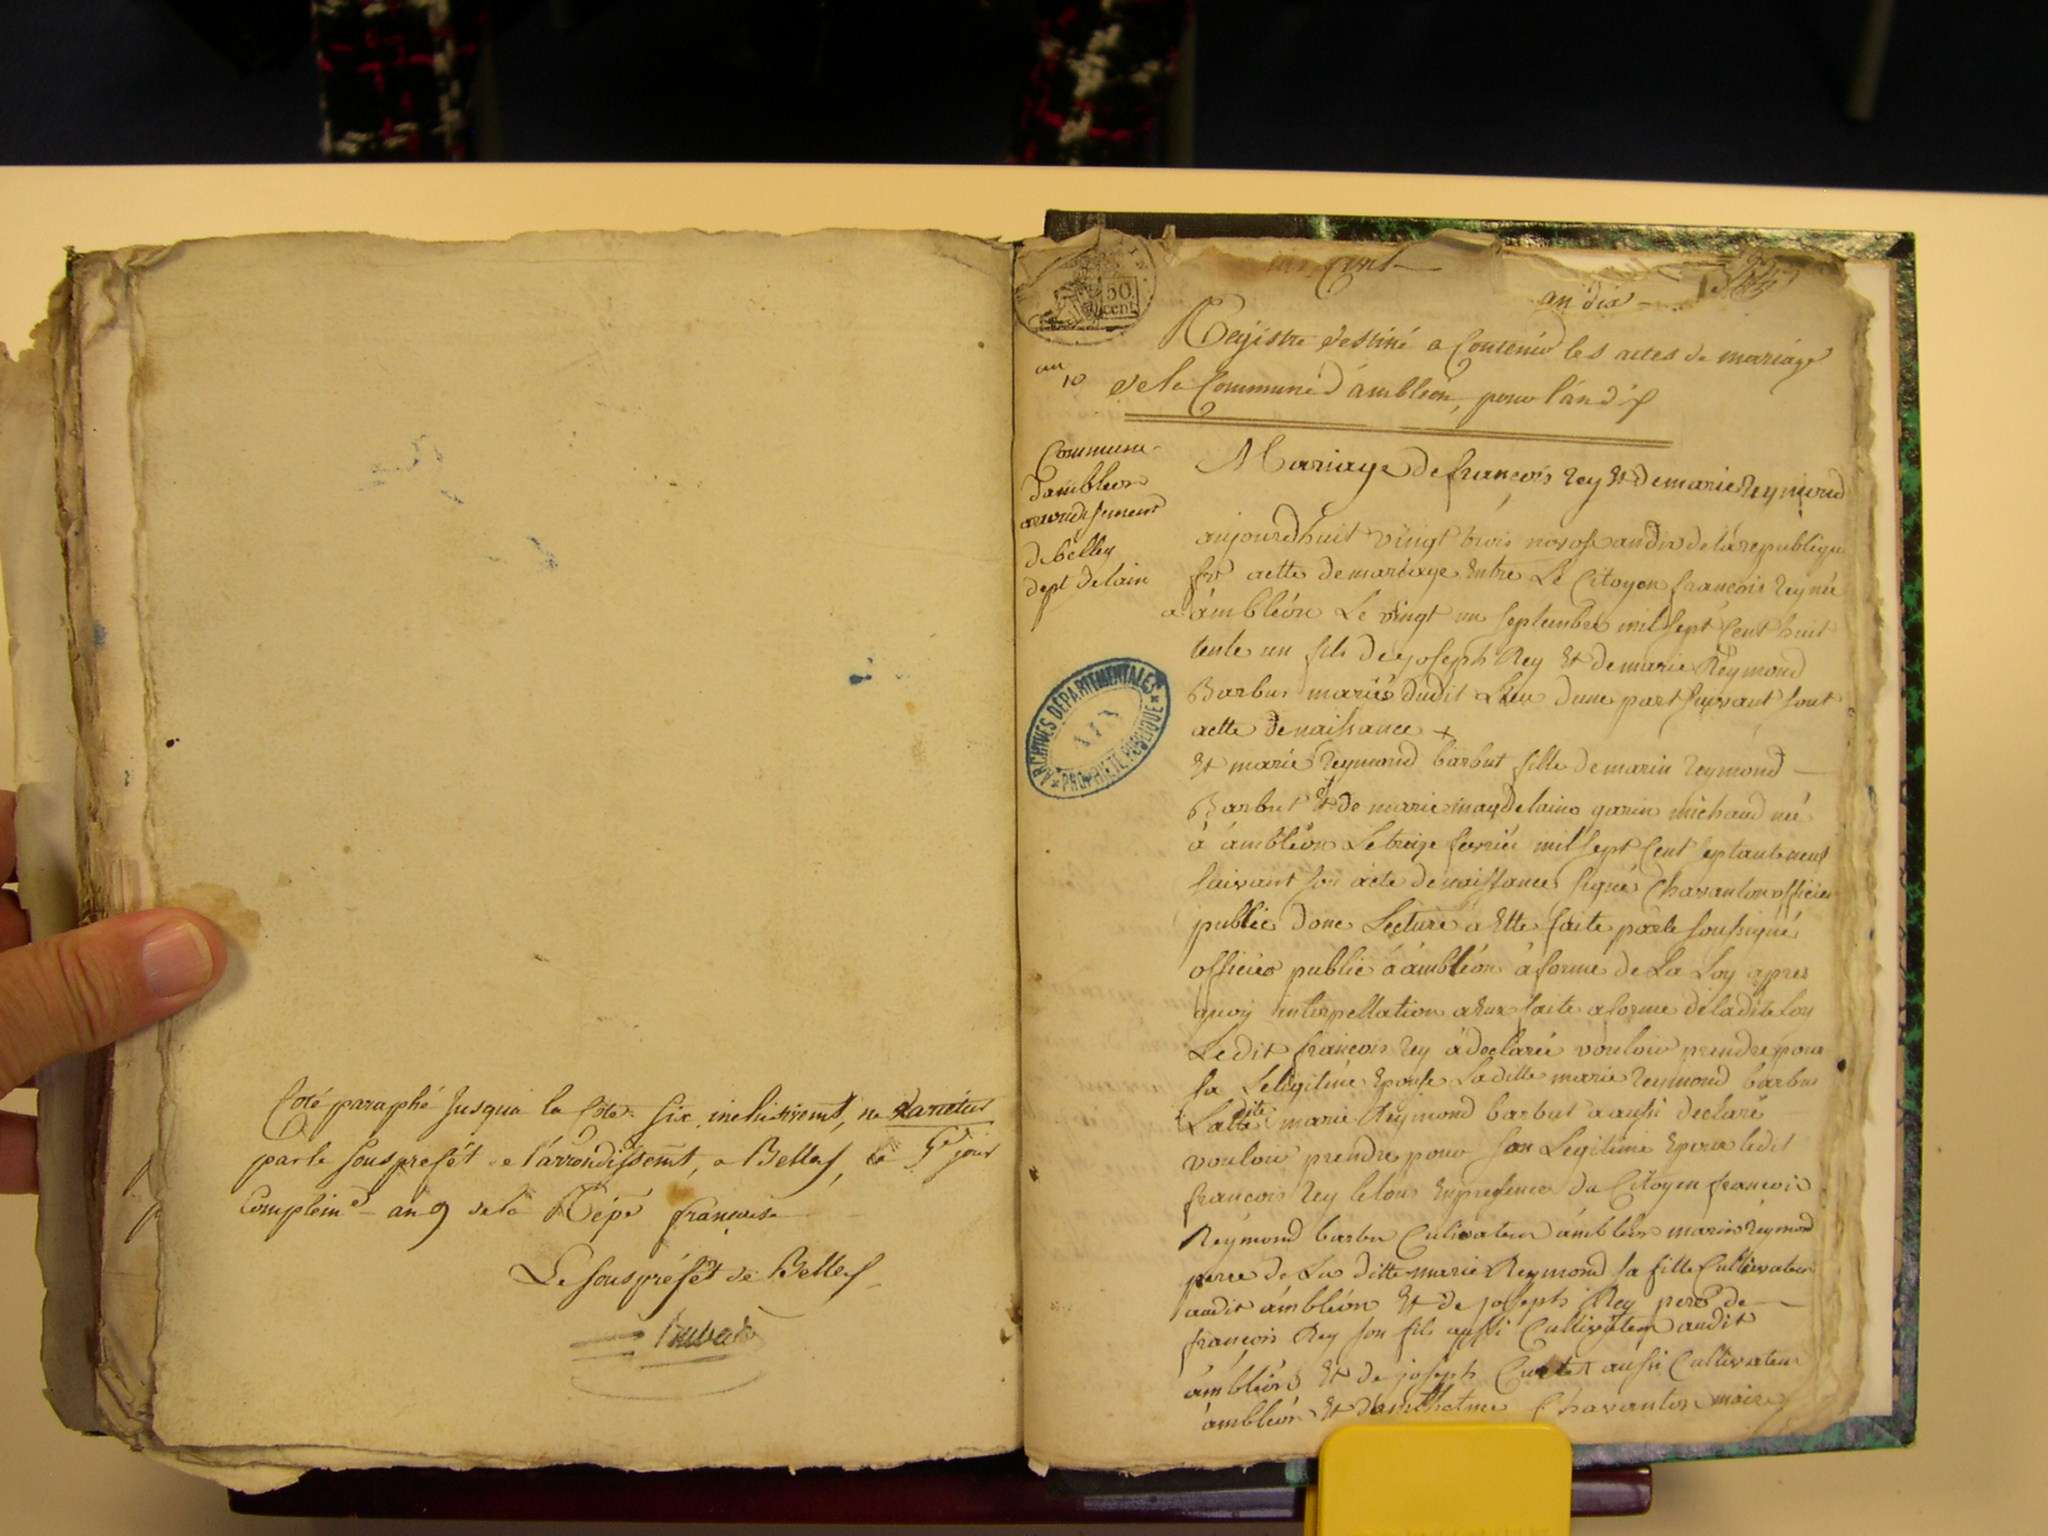 Coté paraphé jusqua la Cote six inclusivemt, ne varietur
par le souspréfêt de l'arrondissemt, a Belley, le 5e jour
Complemre an 9 de la Répe française
Le souspréfêt de Belley
50
cent
an dix
an
10
Registre destiné a Contenir les actes de mariage
de la Commune d'ambléon, pour l'an dix
Commune
dambleon
arrondisement
de belley
dept delain
ARCHIVES DÉPARTEMENTALES
AIN
PROPRIÉTÉ PUBLIQUE
Mariage de françois Rey Et de marie Reymond
aujourdhuit vingt trois nivose an dix de la republique
fse actte de mariage Entre Le Citoyen francois Rey née
a âmbléon Le vingt un septembre mil sept Cent huit
tente un fils de joseph Rey Et de marie Reymond
Barbut mariés dudit Lieu dune part suivant sont
actte de naissance +
Et marie Reymond barbut fille de marin Reymond
Barbut Et de marie magdelaine garin michaud née
â âmbléon Le treize fevrier mil sept Cent septante neuf
suivant son acte de naissance signé Chavanton officier
public donc Lecture a Ette faite par le soussigné
officier public â âmbléon â forme de La Loy apres
quoy interpellation a Eux faite a forme de ladite Loy
Le dit francois Rey â declarée vouloir prendre pour
sa Legitime Epouse Laditte marie Reymond barbut
Ladite marie Reymond barbut a aussi declaré
vouloir prendre pour son Legitime Epoux ledit
francois Rey le tous En presence du Citoyen francois
Reymond barbu Culivateur âmbléon marin Reymond
perre de La ditte marie Reymond sa fille Cultivateur
audit âmbléon Et de joseph Rey pere de
françois Rey son fils aussi Cultivateur audit
âmbléon Et de joseph aussi Cultivateur
âmbléon Et danthelme Chavanton maire